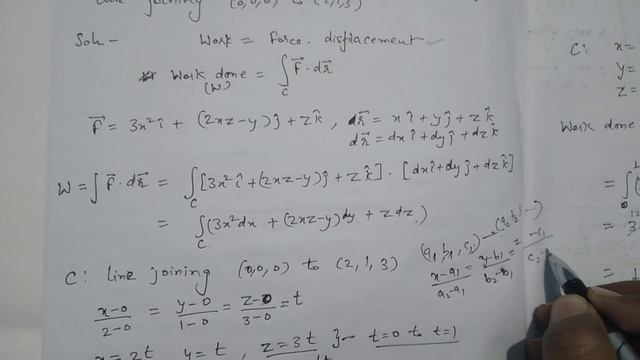 line joining (0,0,0) to (2,1,3)
Soln - Work = Force . displacement
Work done = ∫ F⃗ · dr⃗
(W) C
F⃗ = 3x² î + (2xz-y) ĵ + z k̂ , r⃗ = x î + y ĵ + z k̂
dr⃗ = dx î + dy ĵ + dz k̂
W = ∫ F⃗ · dr⃗ = ∫ [3x² î + (2xz-y) ĵ + z k̂] · [dx î + dy ĵ + dz k̂]
C
= ∫ (3x² dx + (2xz-y) dy + z dz)
C
C: line joining (0,0,0) to (2,1,3)
(a₁, b₁, c₁) → (a₂, b₂
x-a₁/a₂-a₁ = y-b₁/b₂-b₁ = -c₁/c₂-
x-0/2-0 = y-0/1-0 = z-0/3-0 = t
x = 2t y = t, z = 3t } - t=0 to t=1
C: x=
y=
z=
Work done
= ∫
0
= 3
=